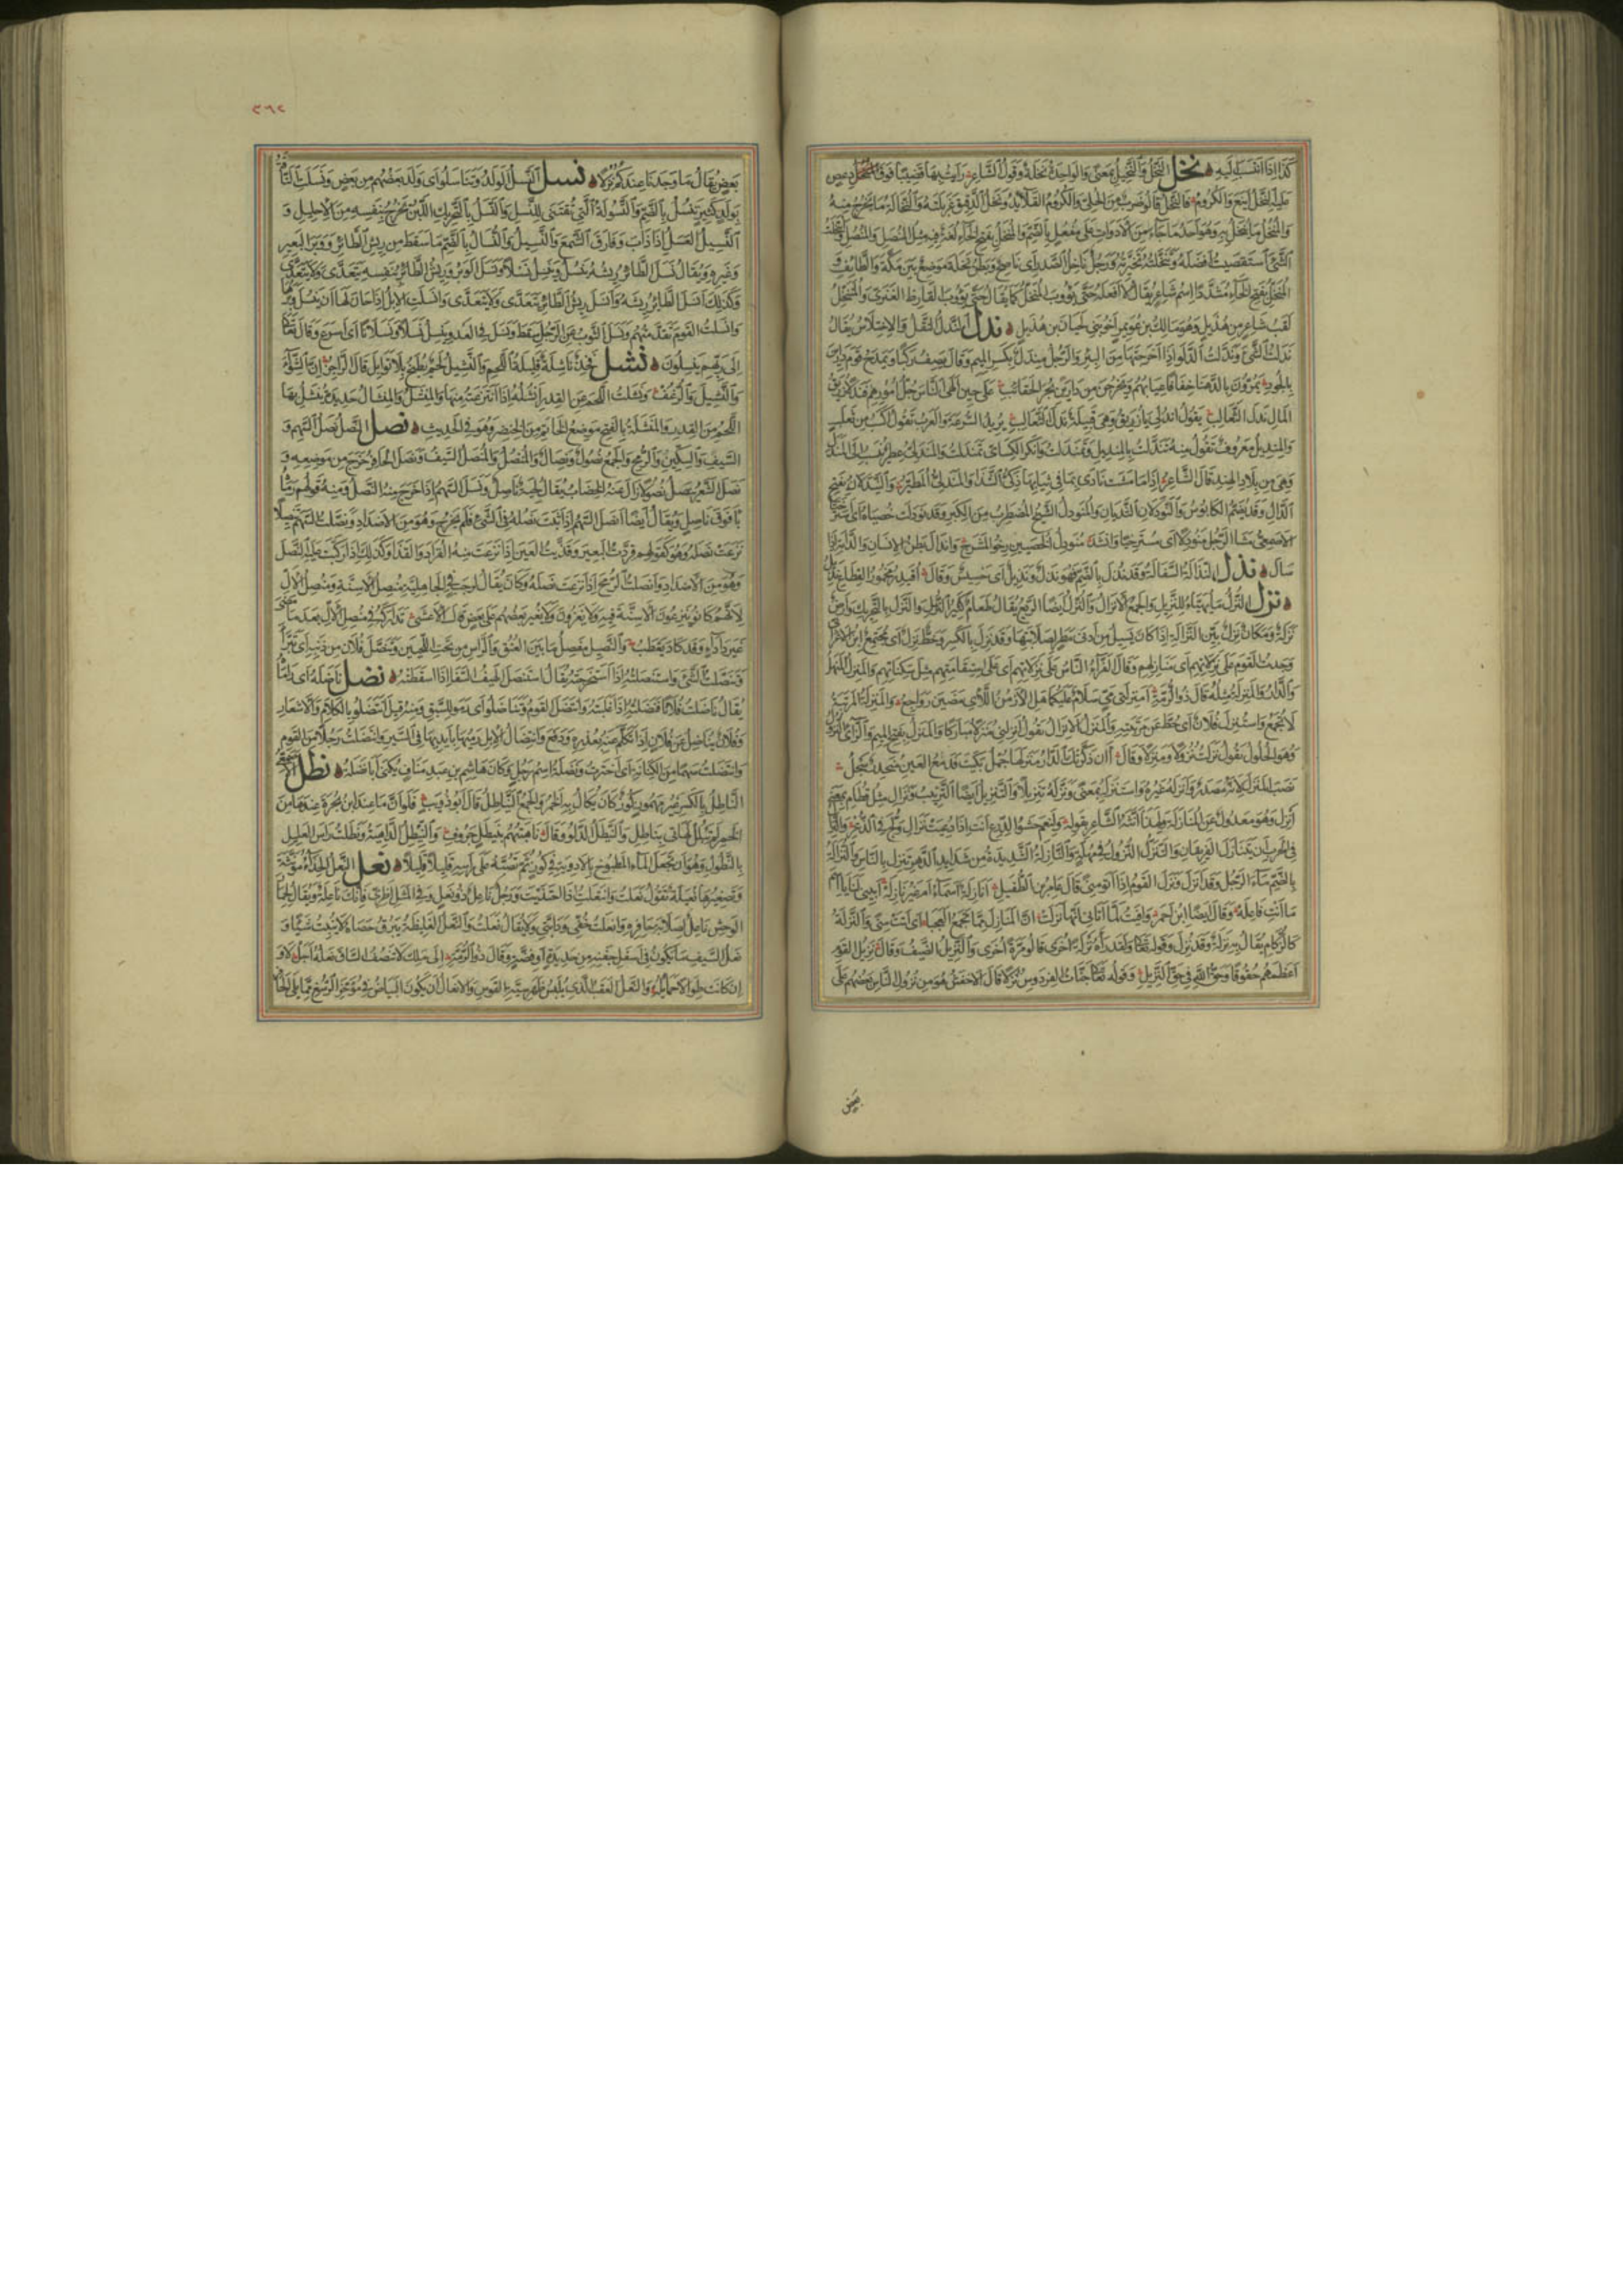 كذا اذا انتسب اليه نخل النخل والنخيل بمعنى والواحدة نخلة وقول الشاعر رايت بها قضيبا فوق دعص
عليه النخل اينع والكروم فالنخل قالوا ضرب من الحلى والكروم القلائد ونخل الدقيق غربلته والنخالة ما يخرج منه
والمنخل ما ينخل به وهو احد ما جاء من الادوات على مفعل بالضم والمنخل بفتح الخاء لغة فيه مثل المنصل والمنصل وانتخلت
الشئ استقصيت افضله وتنخلته تخيرته ورجل ناخل الصدر اى ناصح وبطن نخلة موضع بين مكة والطايف و
المنخل بفتح الخاء مشددا اسم شاعر يقال لا افعله حتى يؤوب المنخل كما يقال حتى يؤوب القارظ العنزى والمتنخل
لقب شاعر من هذيل وهو مالك بن عويمر اخو بنى لحيان من هذيل ندل الندل النقل والاختلاس يقال
ندلت الشئ وندلت الدلو اذا اخرجتها من البئر والرجل مندل بكسر الميم وقال يصف ركبا ويمدح قوم دارين
بالجود يمرون بالدهنا خفافا عيابهم ويخرجن من دارين بجر الحقائب على حين الهى الناس جل امورهم فندلا زريق
المال ندل الثعالب يقول اندلى يا زريق وهى قبيلة ندل الثعالب يريد السرعة والعرب تقول اكسب من ثعلب
والمنديل معروف تقول منه تندلت بالمنديل وتمندلت وانكر الكسائى تمندلت والمندلى عطر ينسب الى المندل
وهى من بلاد الهند قال الشاعر اذا ما مشت نادى بما فى ثيابها ذكى الشذا والمندلى المطير والنيدلان بفتح
الدال وقد تضم الكابوس والنودلان الثديان والمنودل الشيخ المضطرب من الكبر وقد نودلت خصياه اى استرختا
الاصمعى مشى الرجل منودلا اى مسترخيا وانشد منودل الخصيين رخو المشرج واندال بطن الانسان والدابة اذا
سال نذل النذالة السفالة وقد نذل بالضم فهو نذل ونذيل اى خسيس وقال
نزل النزل ما يهيأ للنزيل والجمع الانزال والنزل ايضا الريع يقال طعام كثير النزل والنزل بالتحريك وارض
نزلة ومكان نزل بين النزالة اذا كان يسيل من ادنى مطر لصلابتها وقد نزل بالكسر وحظ نزل اى مجتمع ابن الاعرابى
وجدت القوم على نزلاتهم اى منازلهم وقال الفراء الناس على نزلاتهم اى على استقامتهم مثل سكناتهم والمنزل المنهل
والدار والمنزلة مثله قال ذو الرمة امنزلتى مى سلام عليكما هل الازمن اللائى مضين رواجع والمنزلة المرتبة
لا تجمع واستنزل فلان اى حط عن مرتبته والمنزل الانزال تقول انزلنى منزلا مباركا والمنزل بفتح الميم والزاى النزول
وهو الحلول تقول نزلت نزولا ومنزلا وقال أأن ذكرتك الدار منزلها جمل بكيت فدمع العين منحدر سجل
نصب المنزل لانه مصدر وانزله غيره واستنزله بمعنى ونزله تنزيلا والتنزيل ايضا الترتيب ونزال مثل قطام بمعنى
انزل وهو معدول عن المنازلة ولهذا انثه الشاعر بقوله ولنعم حشو الدرع انت اذا دعيت نزال ولج فى الذعر والنزال
فى الحرب ان يتنازل الفريقان والتنزل النزول فى مهلة والنازلة الشديدة من شدايد الدهر تنزل بالناس والنزالة
بالضم ماء الرجل وقد انزل ونزل القوم اذا اتو منى قال عامر بن الطفيل انازلة اسماء ام غير نازلة ابينى لنا يا اسم
ما انت فاعلة وقال ايضا ابن احمر وافيت لما اتانى انها نزلت ان المنازل مما تجمع العجبا اى اتت منى والنزلة
كالزكام يقال به نزلة وقد نزل وقوله تعالى ولقد رآه نزلة اخرى قالوا مرة اخرى والنزيل الضيف وقال نزيل القوم
اعظمهم حقوقا وحق الله فى حق النزيل وقوله تعالى جنات الفردوس نزلا قال الاخفش هو من نزول الناس بعضهم على
بعض
٣٦٢
بعض يقال ما وجدنا عندكم نزلا نسل النسل الولد وتناسلوا اى ولد بعضهم من بعض ونسلت الناقة
بولد كثير تنسل بالضم والنسولة التى تقتنى للنسل والنسل بالتحريك اللبن يخرج بنفسه من الاحليل و
النسيل العسل اذا ذاب وفارق الشمع والنسيل والنسال بالضم ما سقط من ريش الطائر ووبر البعير
وغيره ويقال نسل الطائر ريشه ينسل وينسل نسلا ونسل الوبر وريش الطائر بنفسه يتعدى ولا يتعدى
وكذلك انسل الطائر ريشه وانسل ريش الطائر يتعدى ولا يتعدى وانسلت الابل اذا حان لها ان تنسل وبرها
وانسلت القوم تقدمتهم ونسل الثوب عن الرجل سقط ونسل فى العدو ينسل نسلا ونسلانا اى اسرع وقال تعالى
الى ربهم ينسلون نشل فخذ ناشلة قليلة اللحم والنشيل لحم يطبخ بلا توابل قال الراجز ان الشواء
والنشيل والرغف ونشلت اللحم عن القدر انشله اذا انتزعته منها والمنشل والمنشال حديدة ينشل بها
اللحم من القدر والمنشلة بالفتح موضع الخاتم من الخنصر وهو فى الحديث نصل النصل نصل السهم و
السيف والسكين والرمح والجمع نصول ونصال والمنصل والمنصل السيف ونصل الحافر خرج من موضعه و
نصل الشعر ينصل نصولا زال عنه الخضاب يقال لحية ناصل ونصل السهم اذا خرج منه النصل ومنه قولهم رماه
بافوق ناصل ويقال ايضا نصل السهم اذا ثبت نصله فى الشئ فلم يخرج وهو من الاضداد ونصلت السهم تنصيلا
نزعت نصله وهو كقولهم قردت البعير وقذيت العين اذا نزعت منه القراد والقذا وكذلك اذا ركبت عليه النصل
وهو من الاضداد وانصلت الرمح اذا نزعت نصله وكان يقال لرجب فى الجاهلية منصل الاسنة ومنصل الال
لانهم كانو ينزعون الاسنة فيه ولا يغزون ولا يغير بعضهم على بعض قال الاعشى تداركه فى منصل الال بعد ما مضى
غير دأداء وقد كاد يعطب والنصيل مفصل ما بين العنق والراس من تحت اللحيين وتنصل فلان من ذنبه اى تبرأ
وتنصلت الشئ واستنصلته اذا استخرجته يقال استنصل الهيف السفا اذا اسقطته نضل ناضله اى راماه
يقال ناضلت فلانا فنضلته اذا غلبته وانتضل القوم وتناضلوا اى رموا للسبق ومنه قيل انتضلو بالكلام والاشعار
وفلان يناضل عن فلان اذا تكلم عنه بعذره ودفع وانتضال الابل رميها بايديها فى السير وانتضلت رجلا من القوم
وانتضلت سهما من الكنانة اى اخترت ونضلة اسم رجل وكان هاشم بن عبد مناف يكنى ابا نضلة نطل
الناطل بالكسر غير مهموز كوز كان يكال به الخمر والجمع النياطل قال ابو ذويب فلو ان ما عند ابن بجرة عندها من
الخمر لم تبلل لهاتى بناطل والنيطل الدلو وقال ناهبتهم بنيطل جروف والنيطل الداهية ونطلت راس العليل
بالنطول وهو ان تجعل الماء المطبوخ بالادوية فى كوز ثم تصبه على راسه قليلا قليلا نعل النعل الحذاء مؤنثة
وتصغيرها نعيلة تقول نعلت وانتعلت اذا احتذيت ورجل ناعل ذو نعل وفى المثل اطرى فانك ناعلة ويقال لحمار
الوحش ناعل لصلابة حافره وانعلت خفى ودابتى ولا يقال نعلت والنعل الغليظة يبرق حصاه لا ينبت شيئا و
نعل السيف ما يكون فى اسفل جفنه من حديدة او فضة وقال ذو الرمة الى ملك لا تنصف الساق نعله اجل لا و
ان كانت طوالا حمايله والنعل العقب الذى يلبس ظهر سية القوس والانعال ان يكون البياض فى مؤخر الرسغ مما يلى الحافر